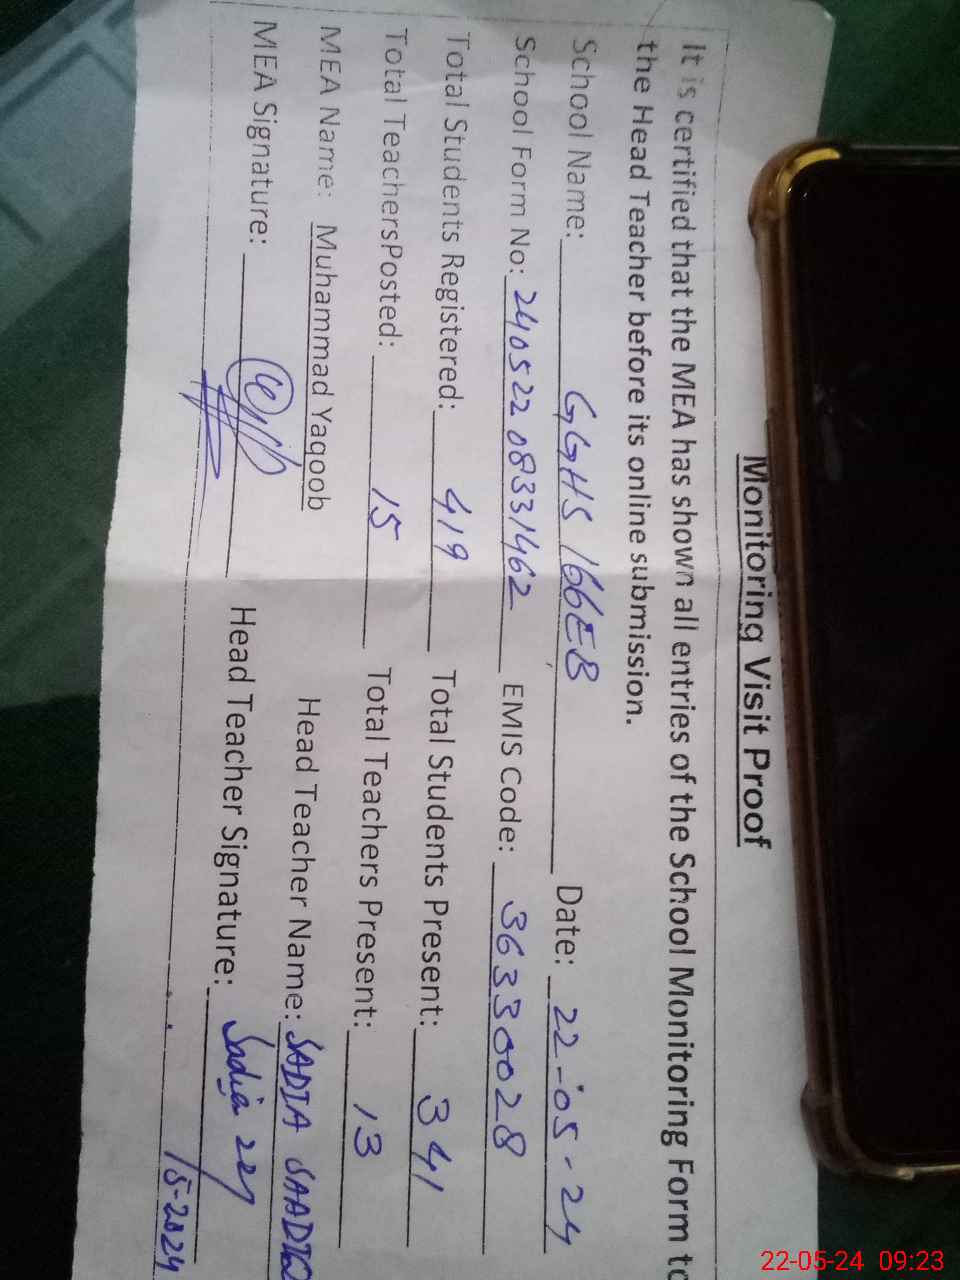 Monitoring Visit Proof
It is certified that the MEA has shown all entries of the School Monitoring Form to
the Head Teacher before its online submission.
School Name: GGHS 166EB Date: 22-05-24
School Form No: 240522 08331462 EMIS Code: 36330028
Total Students Registered: 419 Total Students Present: 341
Total TeachersPosted: 15 Total Teachers Present: 13
MEA Name: Muhammad Yaqoob Head Teacher Name: SADIA SAADIQ
MEA Signature: Head Teacher Signature: Sadia 22/
/5-2024
22-05-24 09:23